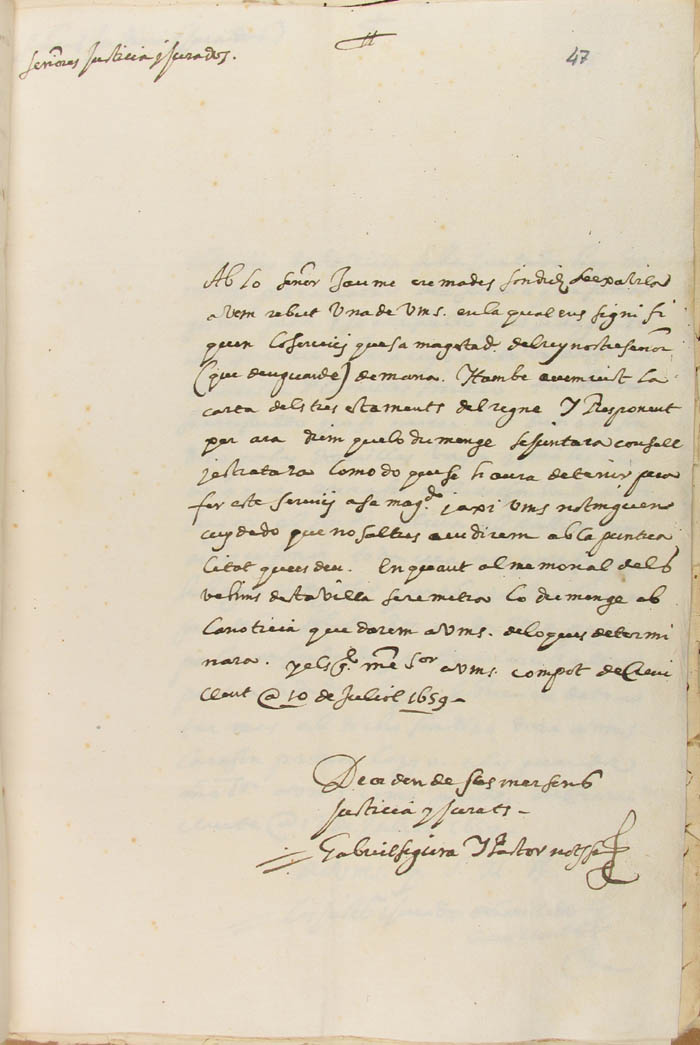 47
señores Justicia y Jurados.
Ab lo señor Jaume cremades sindich de exa vila
avem rebut una de vms. en la qual ens signi fi
quen lo servici que sa magestad. del rey nostre señor
(que deu guarde) demana. Y tambe avem vist la
carta dels tres estaments del regne Y Responent
per ara diem que lo diumenge se juntara consell
y es tratara lo modo que se haura de tenir pera
fer este servici a sa magd. y axi vms no tinguen
cuydado que nosaltres acudirem ab la puntua
litat que es deu. En quant al memorial dels
vehins de ta villa se remetra lo diumenge ab
la noticia que darem a vms. de lo que es determi
nara. a vms. com pot de Crevi
llent @ 10 de Juliol 1659
De orden de Ses mersens
Justicia y Jurats
Gabriel sigura Y Pastor not